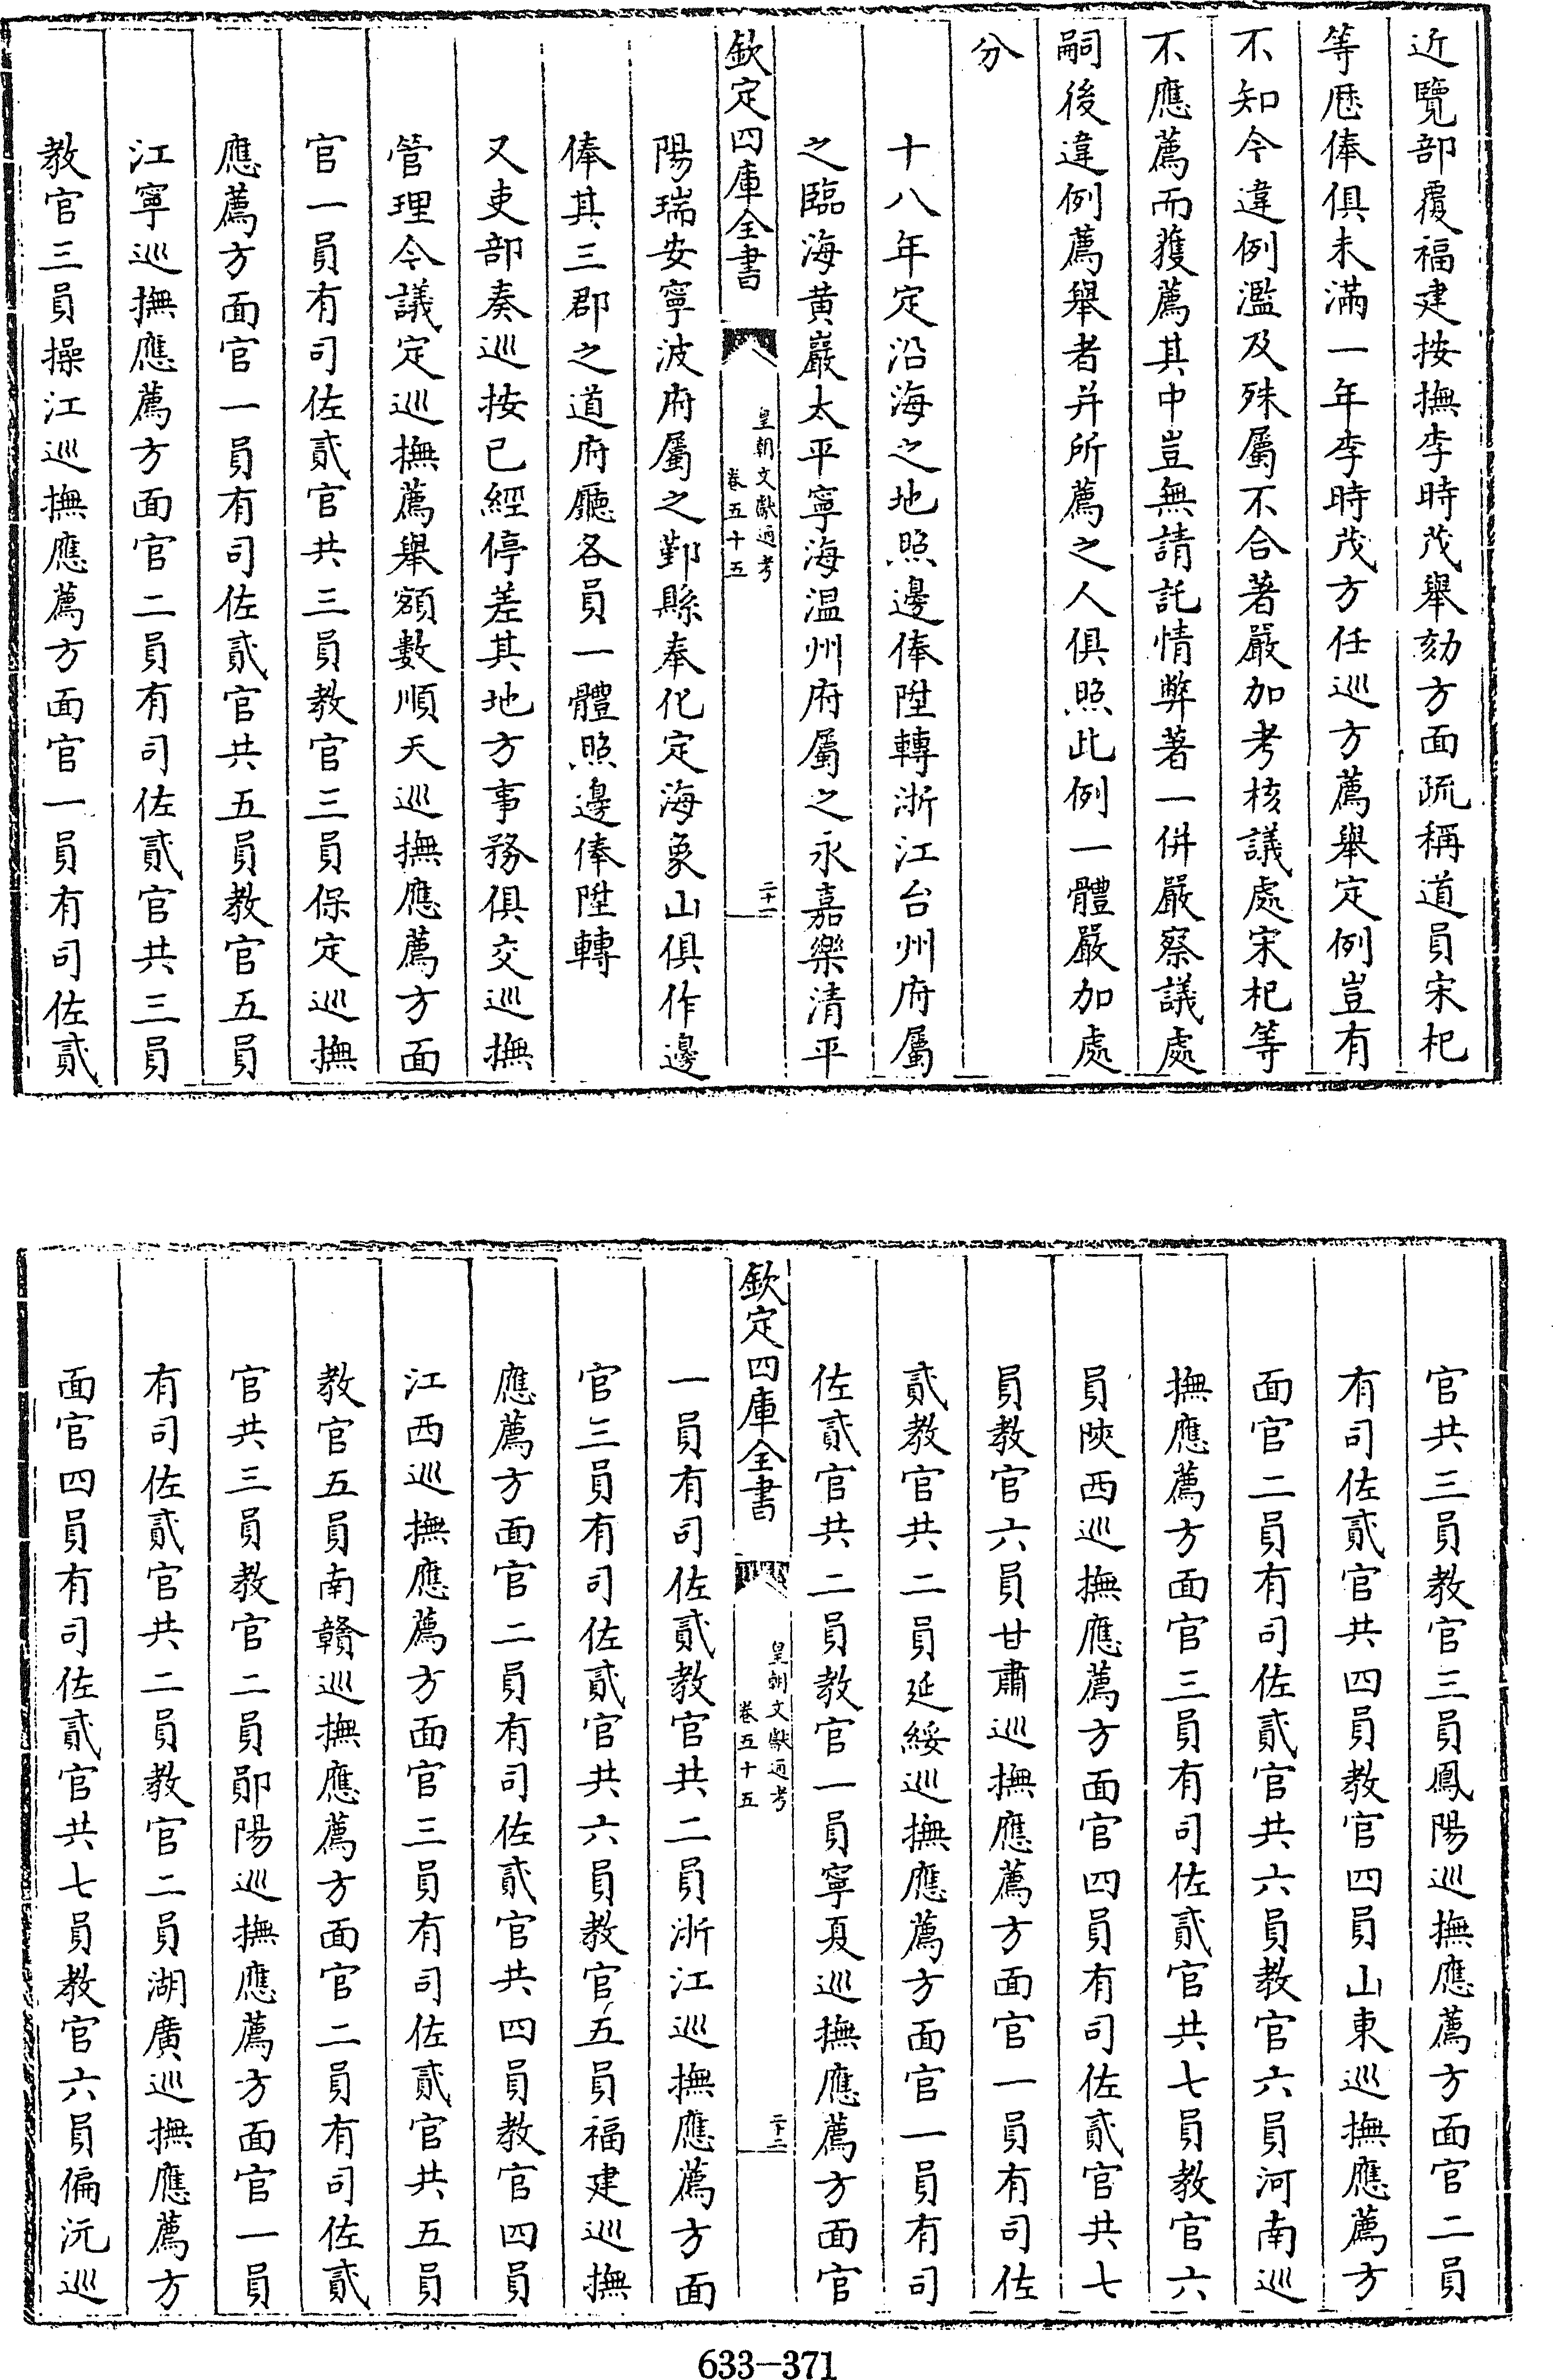 近覽部覆福建按撫李時茂舉劾方面疏稱道員宋杞
等歴俸俱未滿一年李時茂方任巡方薦舉定例豈有
不知今違例濫及殊屬不合著嚴加考核議處宋杞等
不應薦而獲薦其中豈無請託情弊著一併嚴察議處
嗣後違例薦舉者并所薦之人俱照此例一體嚴加處
分
十八年定沿海之地照邊俸陞轉浙江台州府屬
之臨海黄巖太平寧海温州府屬之永嘉樂清平
欽定四庫全書
皇朝文獻通考
卷五十五
二十一
陽瑞安寧波府屬之鄞縣奉化定海象山俱作邊
俸其三郡之道府廳各員一體照邊俸陞轉
又吏部奏巡按已經停差其地方事務俱交巡撫
管理今議定巡撫薦舉額數順天巡撫應薦方面
官一員有司佐貳官共三員教官三員保定巡撫
應薦方面官一員有司佐貳官共五員教官五員
江寧巡撫應薦方面官二員有司佐貳官共三員
教官三員操江巡撫應薦方面官一員有司佐貳
官共三員教官三員鳳陽巡撫應薦方面官二員
有司佐貳官共四員教官四員山東巡撫應薦方
面官二員有司佐貳官共六員教官六員河南巡
撫應薦方面官三員有司佐貳官共七員教官六
員陜西巡撫應薦方面官四員有司佐貳官共七
員教官六員甘肅巡撫應薦方面官一員有司佐
貳教官共二員延綏巡撫應薦方面官一員有司
佐貳官共二員教官一員寧夏巡撫應薦方面官
欽定四庫全書
皇朝文獻通考
卷五十五
二十二
一員有司佐貳教官共二員浙江巡撫應薦方面
官三員有司佐貳官共六員教官五員福建巡撫
應薦方面官二員有司佐貳官共四員教官四員
江西巡撫應薦方面官三員有司佐貳官共五員
教官五員南贛巡撫應薦方面官二員有司佐貳
官共三員教官二員鄖陽巡撫應薦方面官一員
有司佐貳官共二員教官二員湖廣巡撫應薦方
面官四員有司佐貳官共七員教官六員偏沅巡
633-371